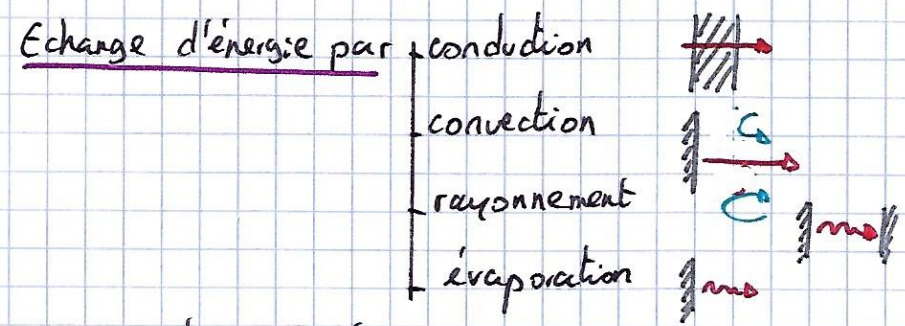 Echange d'énergie par conduction
convection
rayonnement
évaporation